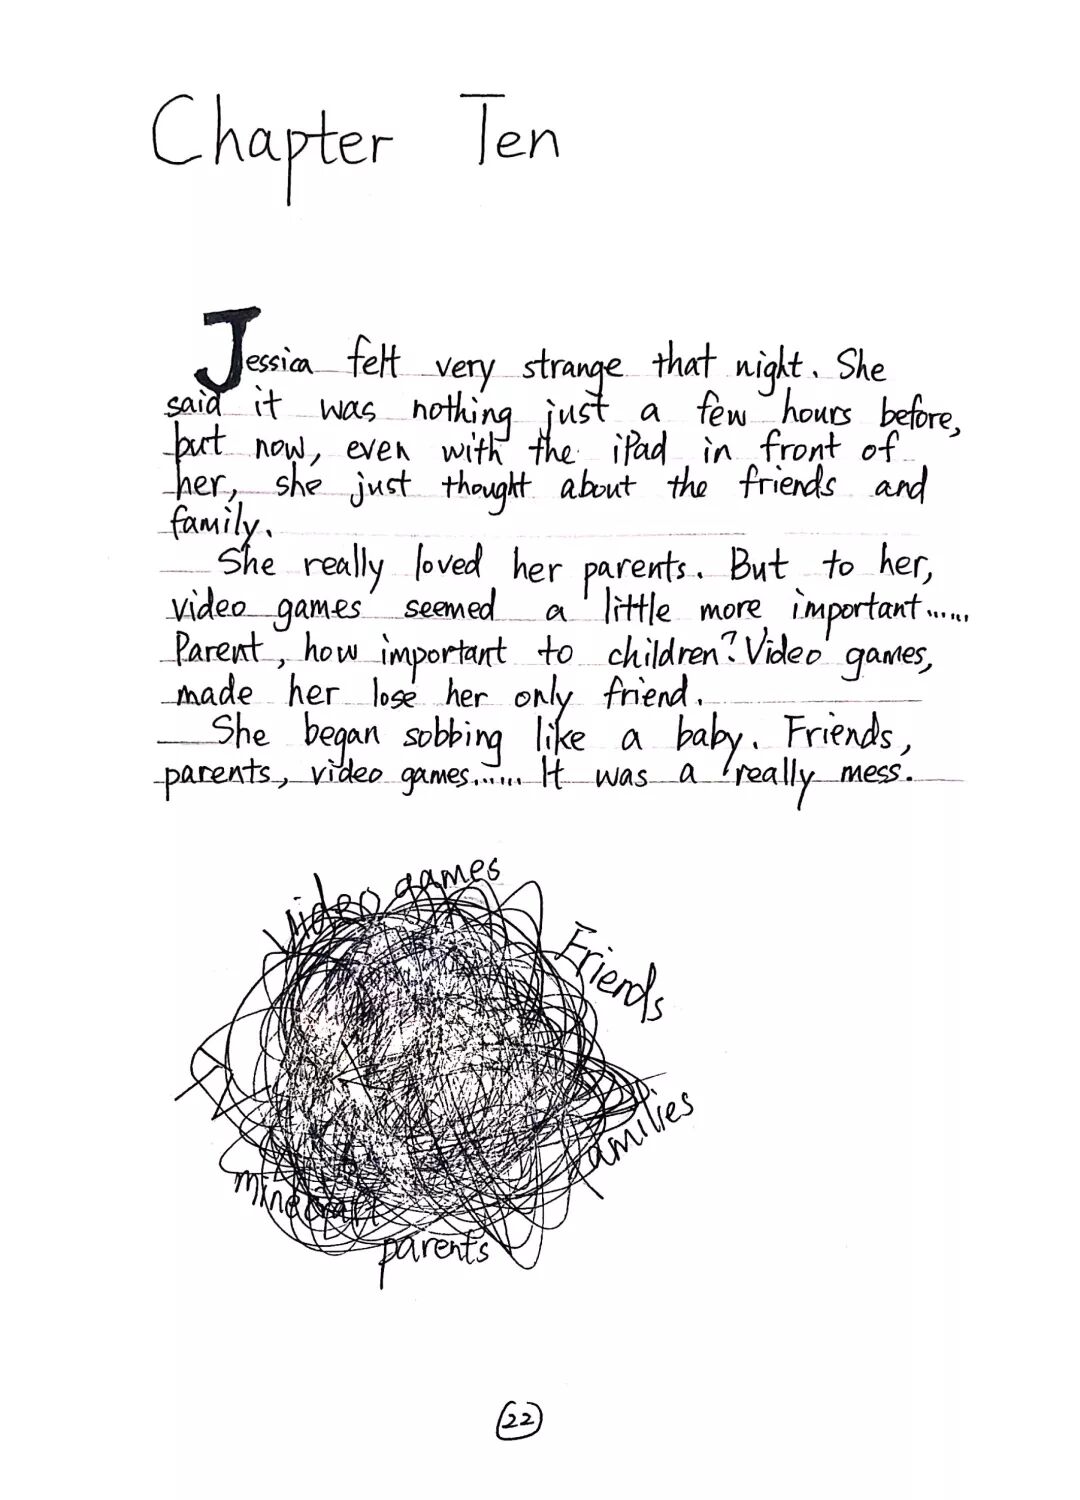 Chapter Ten
Jessica felt very strange that night. She
said it was nothing just a few hours before,
but now, even with the iPad in front of
her, she just thought about the friends and
family.
She really loved her parents. But to her,
video games seemed a little more important......
Parent, how important to children? Video games,
made her lose her only friend.
She began sobbing like a baby. Friends,
parents, video games...... It was a really mess.
Video games
Friends
families
minecraft
parents
22